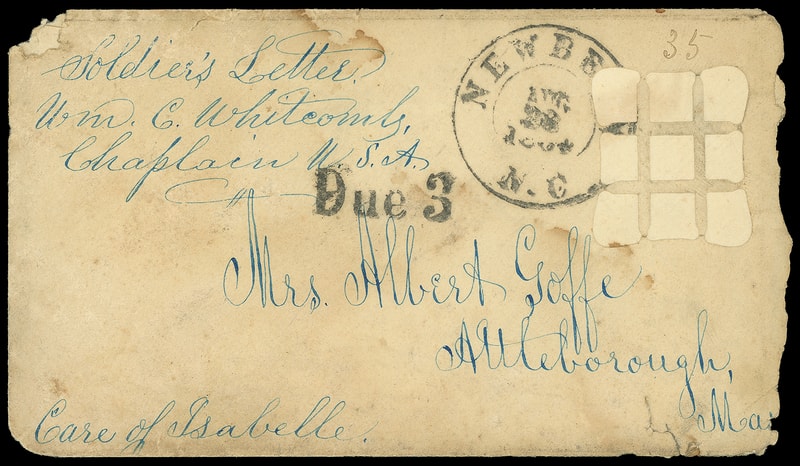 Soldier's Letter.
Wm. C. Whitcomb,
Chaplain U.S.A.
Due 3
NEWBE
AUG.
1864
N. C
35
Mrs. Albert Goffe
Attleborough,
Mas
Care of Isabelle.